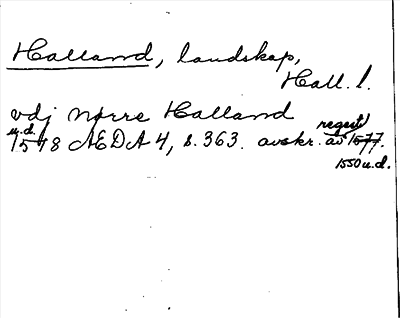 Halland, landskap,
Hall. l.
vdj Nørre Halland
u.d. regest
1548 AEDA 4, s. 363. avskr. av 1577.
1550 u.d.